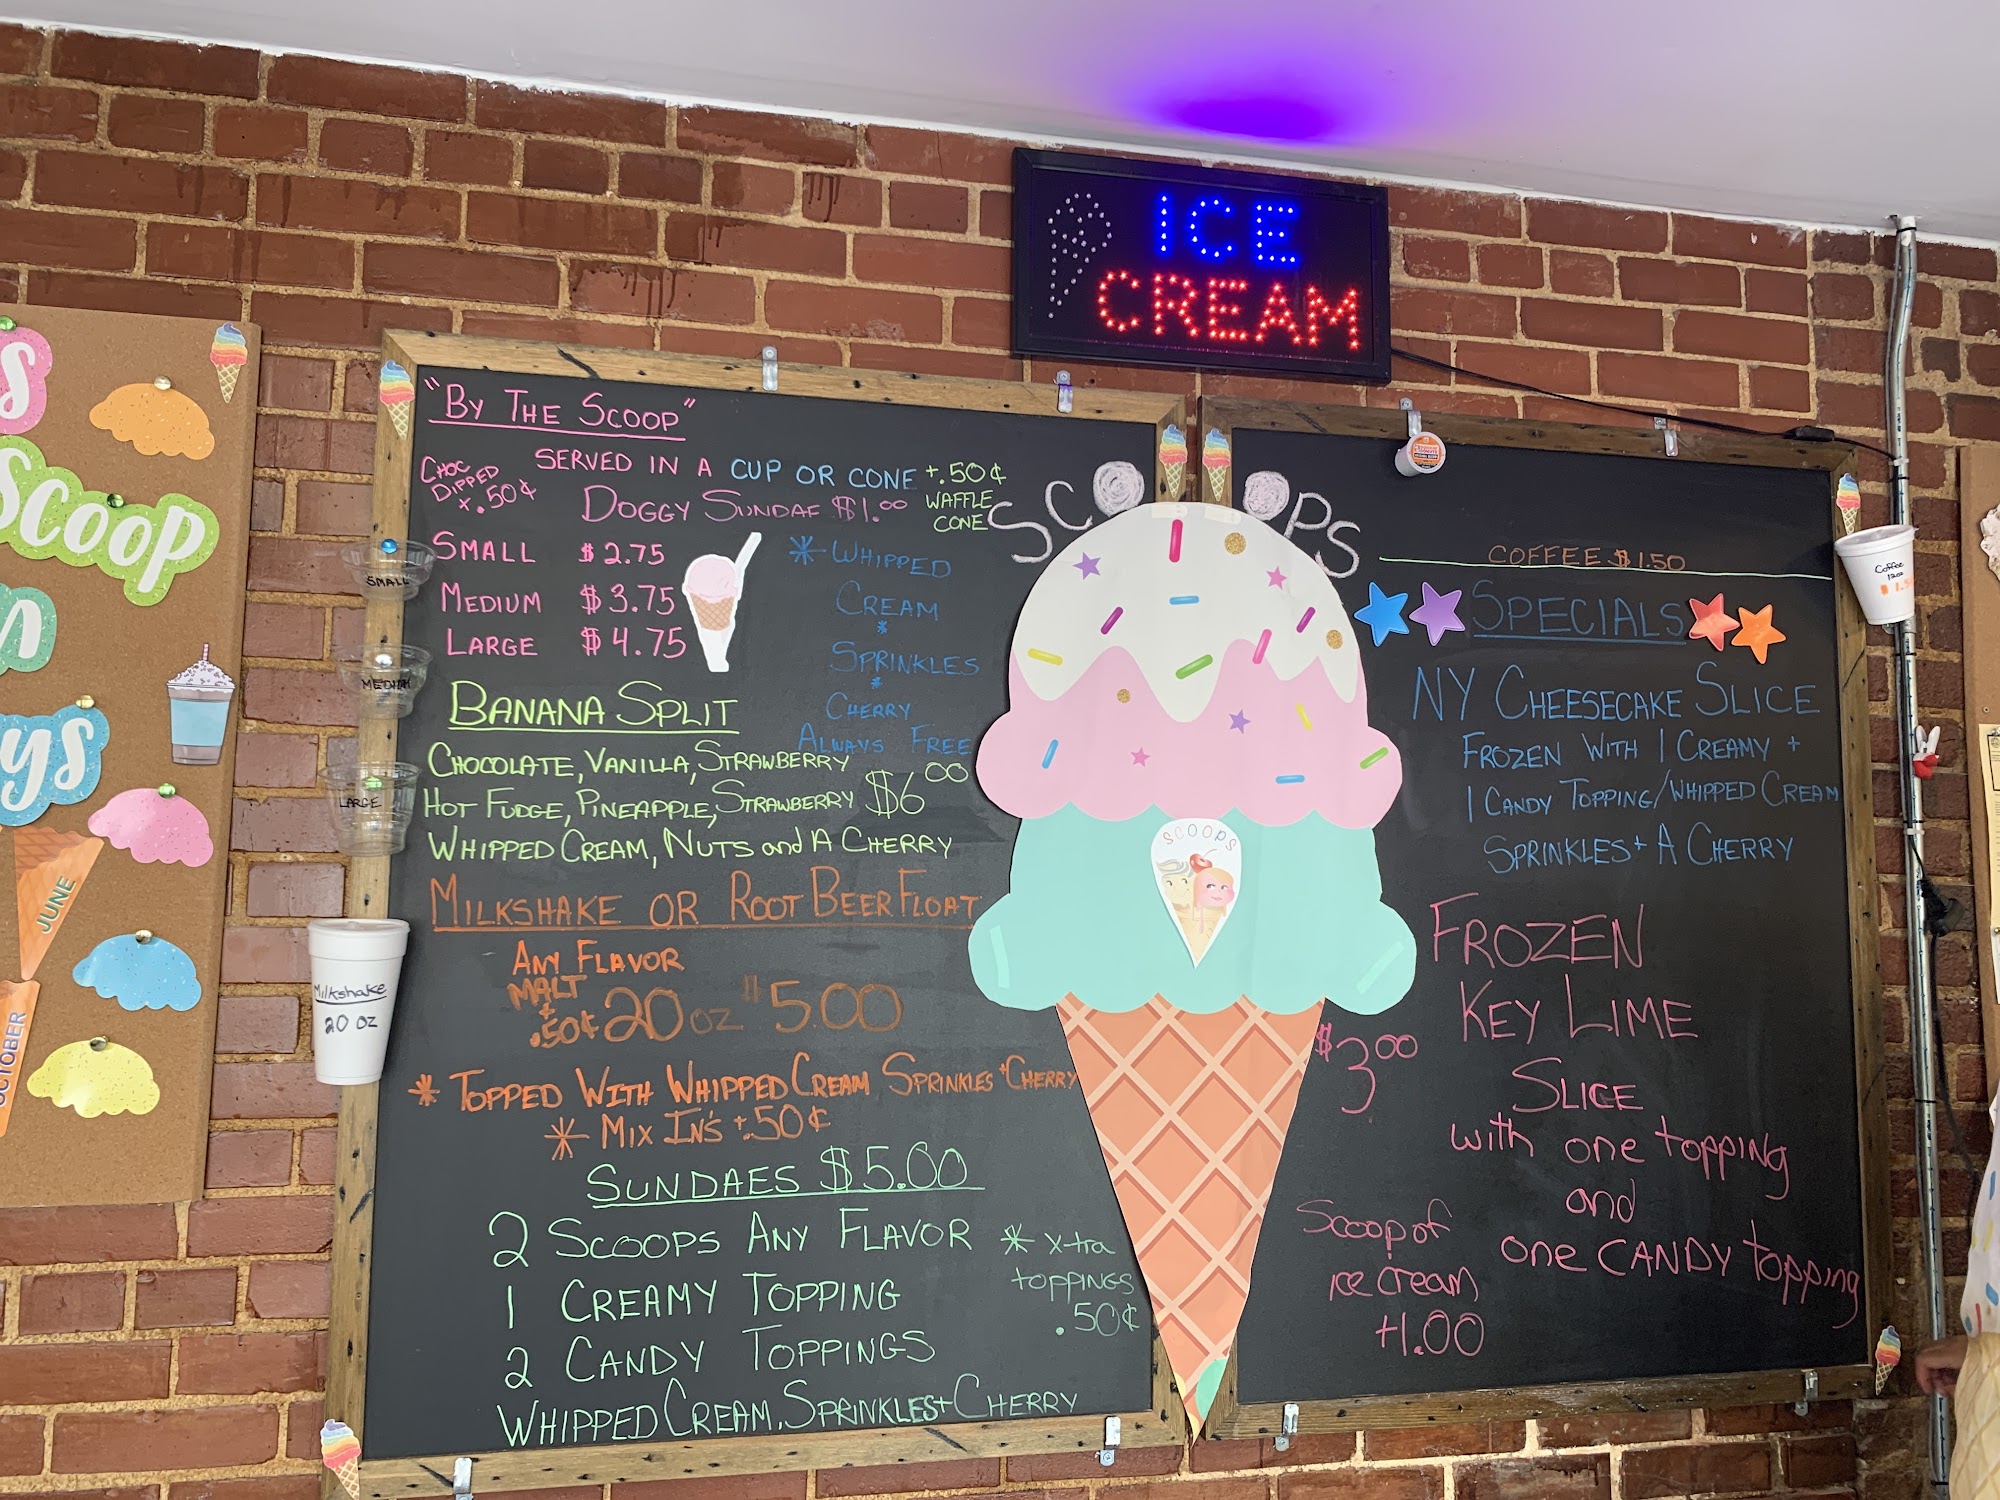 ICE
CREAM
S
Scoop
n
ys
JUNE
OCTOBER
"BY THE SCOOP"
CHOC
DIPPED
+.50¢
SERVED IN A CUP OR CONE
+.50¢
WAFFLE
CONE
DOGGY SUNDAE $1.00
SMALL $2.75
MEDIUM $3.75
LARGE $4.75
* WHIPPED
CREAM
*
SPRINKLES
*
CHERRY
ALWAYS FREE
BANANA SPLIT
CHOCOLATE, VANILLA, STRAWBERRY
HOT FUDGE, PINEAPPLE, STRAWBERRY $6.00
WHIPPED CREAM, NUTS and A CHERRY
MILKSHAKE OR ROOT BEER FLOAT
ANY FLAVOR
MALT
+
.50¢
20 oz $5.00
* TOPPED WITH WHIPPED CREAM SPRINKLES + CHERRY
* MIX IN'S +.50¢
SUNDAES $5.00
2 SCOOPS ANY FLAVOR
1 CREAMY TOPPING
2 CANDY TOPPINGS
WHIPPED CREAM, SPRINKLES + CHERRY
* x-tra
toppings
.50¢
SMALL
MEDIUM
LARGE
Milkshake
20 oz
SCOOPS
SCOOPS
COFFEE $1.50
Coffee
12oz
SPECIALS
NY CHEESECAKE SLICE
FROZEN WITH 1 CREAMY +
1 CANDY TOPPING/WHIPPED CREAM
SPRINKLES + A CHERRY
FROZEN
KEY LIME
SLICE
$3.00
with one topping
and
one CANDY topping
Scoop of
ice cream
+1.00